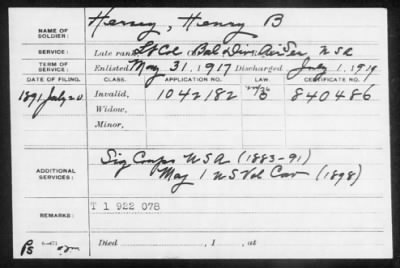 NAME OF SOLDIER: Hersey, Henry B
SERVICE: Late rank, Lt Col Bal Div. Air Ser, U S A
TERM OF SERVICE: Enlisted May 31, 1917 Discharged July 1, 1919
DATE OF FILING. CLASS. APPLICATION NO. LAW. CERTIFICATE NO.
1891 July 20 Invalid, 1042182 840486
Widow,
Minor,
ADDITIONAL SERVICES: Sig Corps U S A (1883-91)
Maj 1 U S Vol Cav (1898)
REMARKS: T 1 922 078
Died , 1 , at